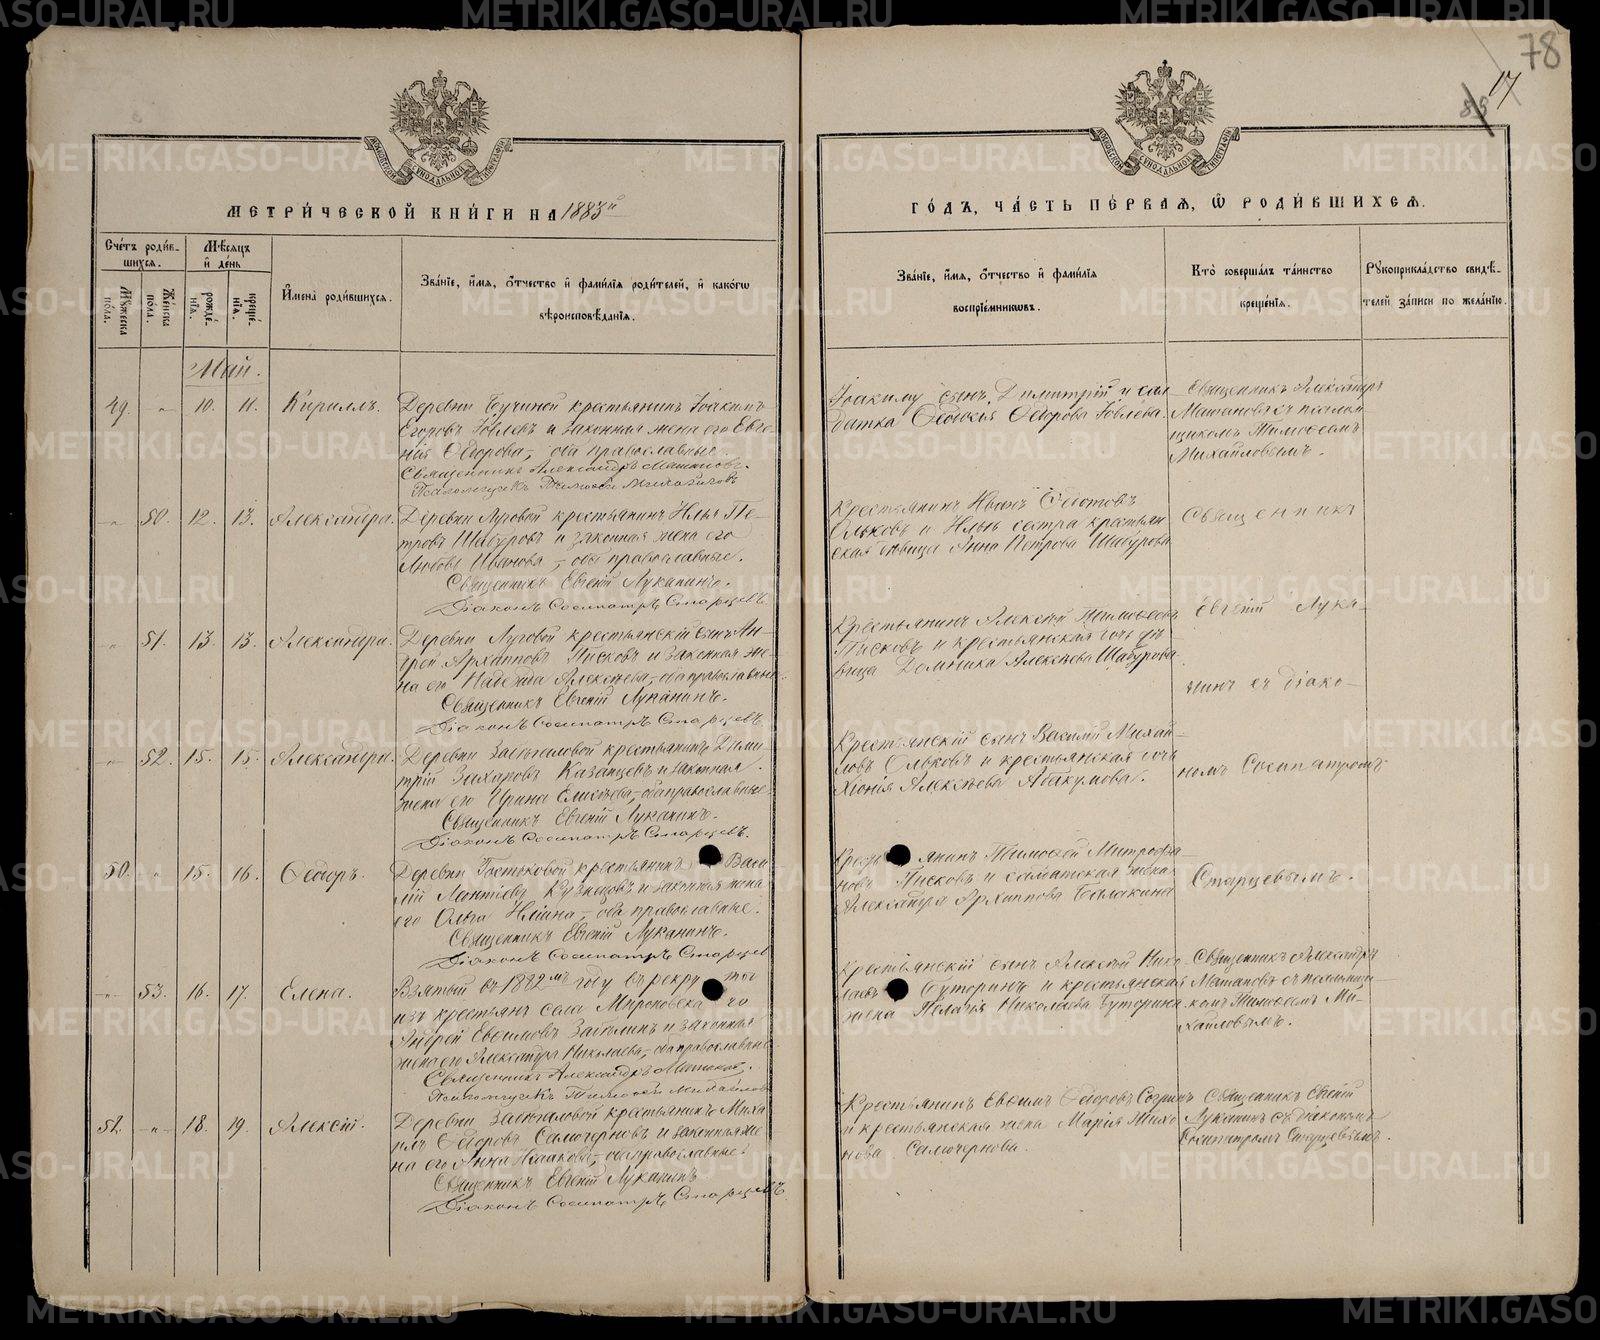 78
17
85
МОСКОВСКОЙ СѴНОДАЛЬНОЙ ТИПОГРАФІИ
МОСКОВСКОЙ СѴНОДАЛЬНОЙ ТИПОГРАФІИ
МЕТРИ́ЧЕСКОЙ КНИ́ГИ НА 1883й
ГО́ДЪ, ЧА́СТЬ ПЕ́РВАЯ, Ѡ РОДИ́ВШИХСЯ.
Сче́тъ роди́в-
шихся.
Мꙋжеска
пола.
Же́нска
пола.
Мѣсяцъ
и҆ де́нь
рожде́-
нїя.
креще́-
нїя.
И҆мена̀ роди́вшихся.
Зва́нїе, и҆́мя, ѻ҆́тчество и҆ фамⷧи́лїя роди́телей, и҆ како́гѡ
вѣроисповѣ́данїя.
Зва́нїе, и҆́мя, ѻ҆́тчество и҆ фами́лїя
воспрїе́мникѡвъ.
Кто̀ соверша́лъ та́инство
креще́нїя.
Рꙋкоприкла́дство свидѣ́-
телей за́писи по жела́нїю.
Май.
49. „ 10. 11. Кириллъ.
Деревни Бучиной крестьянинъ Іоакимъ
Егоровъ Іовлевъ и законная жена его Евге-
нія Ѳедорова, оба православные.
Священникъ Александръ
Псаломщикъ Тимоѳей Михайловъ
Іоакиму сынъ Димитрій и сол
датка Ѳеодосія Ѳедорова Іовлева.
Священникъ Александръ
съ псалом
щикомъ Тимоѳеемъ
Михайловымъ.
„ 50. 12. 13. Александра.
Деревни Луговой крестьянинъ Илья Пе-
тровъ Шабуровъ и законная жена его
Любовь Иванова, оба православные.
Священникъ Евгеній Луканинъ.
Діаконъ Сосипатръ Старцевъ
Крестьянинъ Иванъ
Ольковъ и Ильи сестра крестьян
ская дѣвица Анна Петрова Шабурова
Священникъ
„ 51. 13. 13. Александра.
Деревни Луговой крестьянскій сынъ Ан-
дрей Архиповъ Писковъ и законная же-
на его Надежда Алексѣева, оба православные.
Священникъ Евгеній Луканинъ.
Діаконъ Сосипатръ Старцевъ
Крестьянинъ Алексѣй Тимоѳеевъ
Писковъ и крестьянская дочь дѣ-
вица Домника Алексѣева Шабурова.
Евгеній Лука-
нинъ съ діако-
„ 52. 15. 15. Александра.
Деревни крестьянинъ Дими
трій Захаровъ Казанцевъ и законная
жена его Ирина Елисѣева, оба православные.
Священникъ Евгеній Луканинъ.
Діаконъ Сосипатръ Старцевъ.
Крестьянскій сынъ Василій Михай-
ловъ Ольковъ и крестьянская дочь
Хіонія Алексѣева Абакумова.
номъ Сосипатромъ
50. „ 15. 16. Ѳедоръ.
Деревни крестьянинъ Васи
лій Леонтіевъ Кузнецовъ и законная жена
его Ольга Ильина, оба православные.
Священникъ Евгеній Луканинъ.
Діаконъ Сосипатръ Старцев
Крестьянинъ Тимоѳей Митрофа-
новъ Писковъ и солдатская жена
Александра Архиппова Балакина
Старцевымъ.
„ 53. 16. 17. Елена.
Взятый въ 1882мъ году въ рекруты
изъ крестьянъ села Мироновска го
Андрей Евѳимовъ Забелинъ и законная
жена его Александра Николаева, оба православные
Священникъ Александръ
Псаломщикъ Тимоѳей Михайлов
Крестьянскій сынъ Алексѣй Нико-
лаевъ Буторинъ и крестьянская
жена Пелагія Николаева Буторина.
Священникъ Александръ
съ псаломщи
комъ Тимоѳеемъ Ми-
хайловымъ.
51. „ 18. 19. Алексій.
Деревни крестьянинъ Миха
илъ Ѳедоровъ Самочерновъ и законная же
на его Анна Исакова, оба православные.
Священникъ Евгеній Луканинъ
Діаконъ Сосипатръ Старцевъ.
Крестьянинъ Евѳимъ Ѳедоровъ
и крестьянская жена Марія Тихо
нова Самочернова.
Священникъ Евгеній
Луканинъ съ діакономъ
Сосипатромъ Старцевымъ.
METRIKI.GASO-URAL.RU